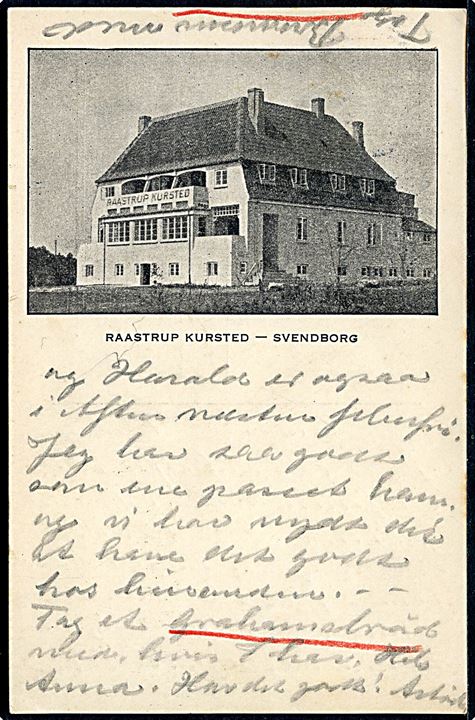 Tag
Brunsens med
RAASTRUP KURSTED
RAASTRUP KURSTED — SVENDBORG
og Harald er ogsaa
i Aften næsten feberfri.
Jeg har saa godt
som ene passet ham.
og vi har nydt det
at have det godt
hos hinanden. - -
Tag et Grahamsbrød
med, hvis I har. Hils
Anna. Hav det godt!